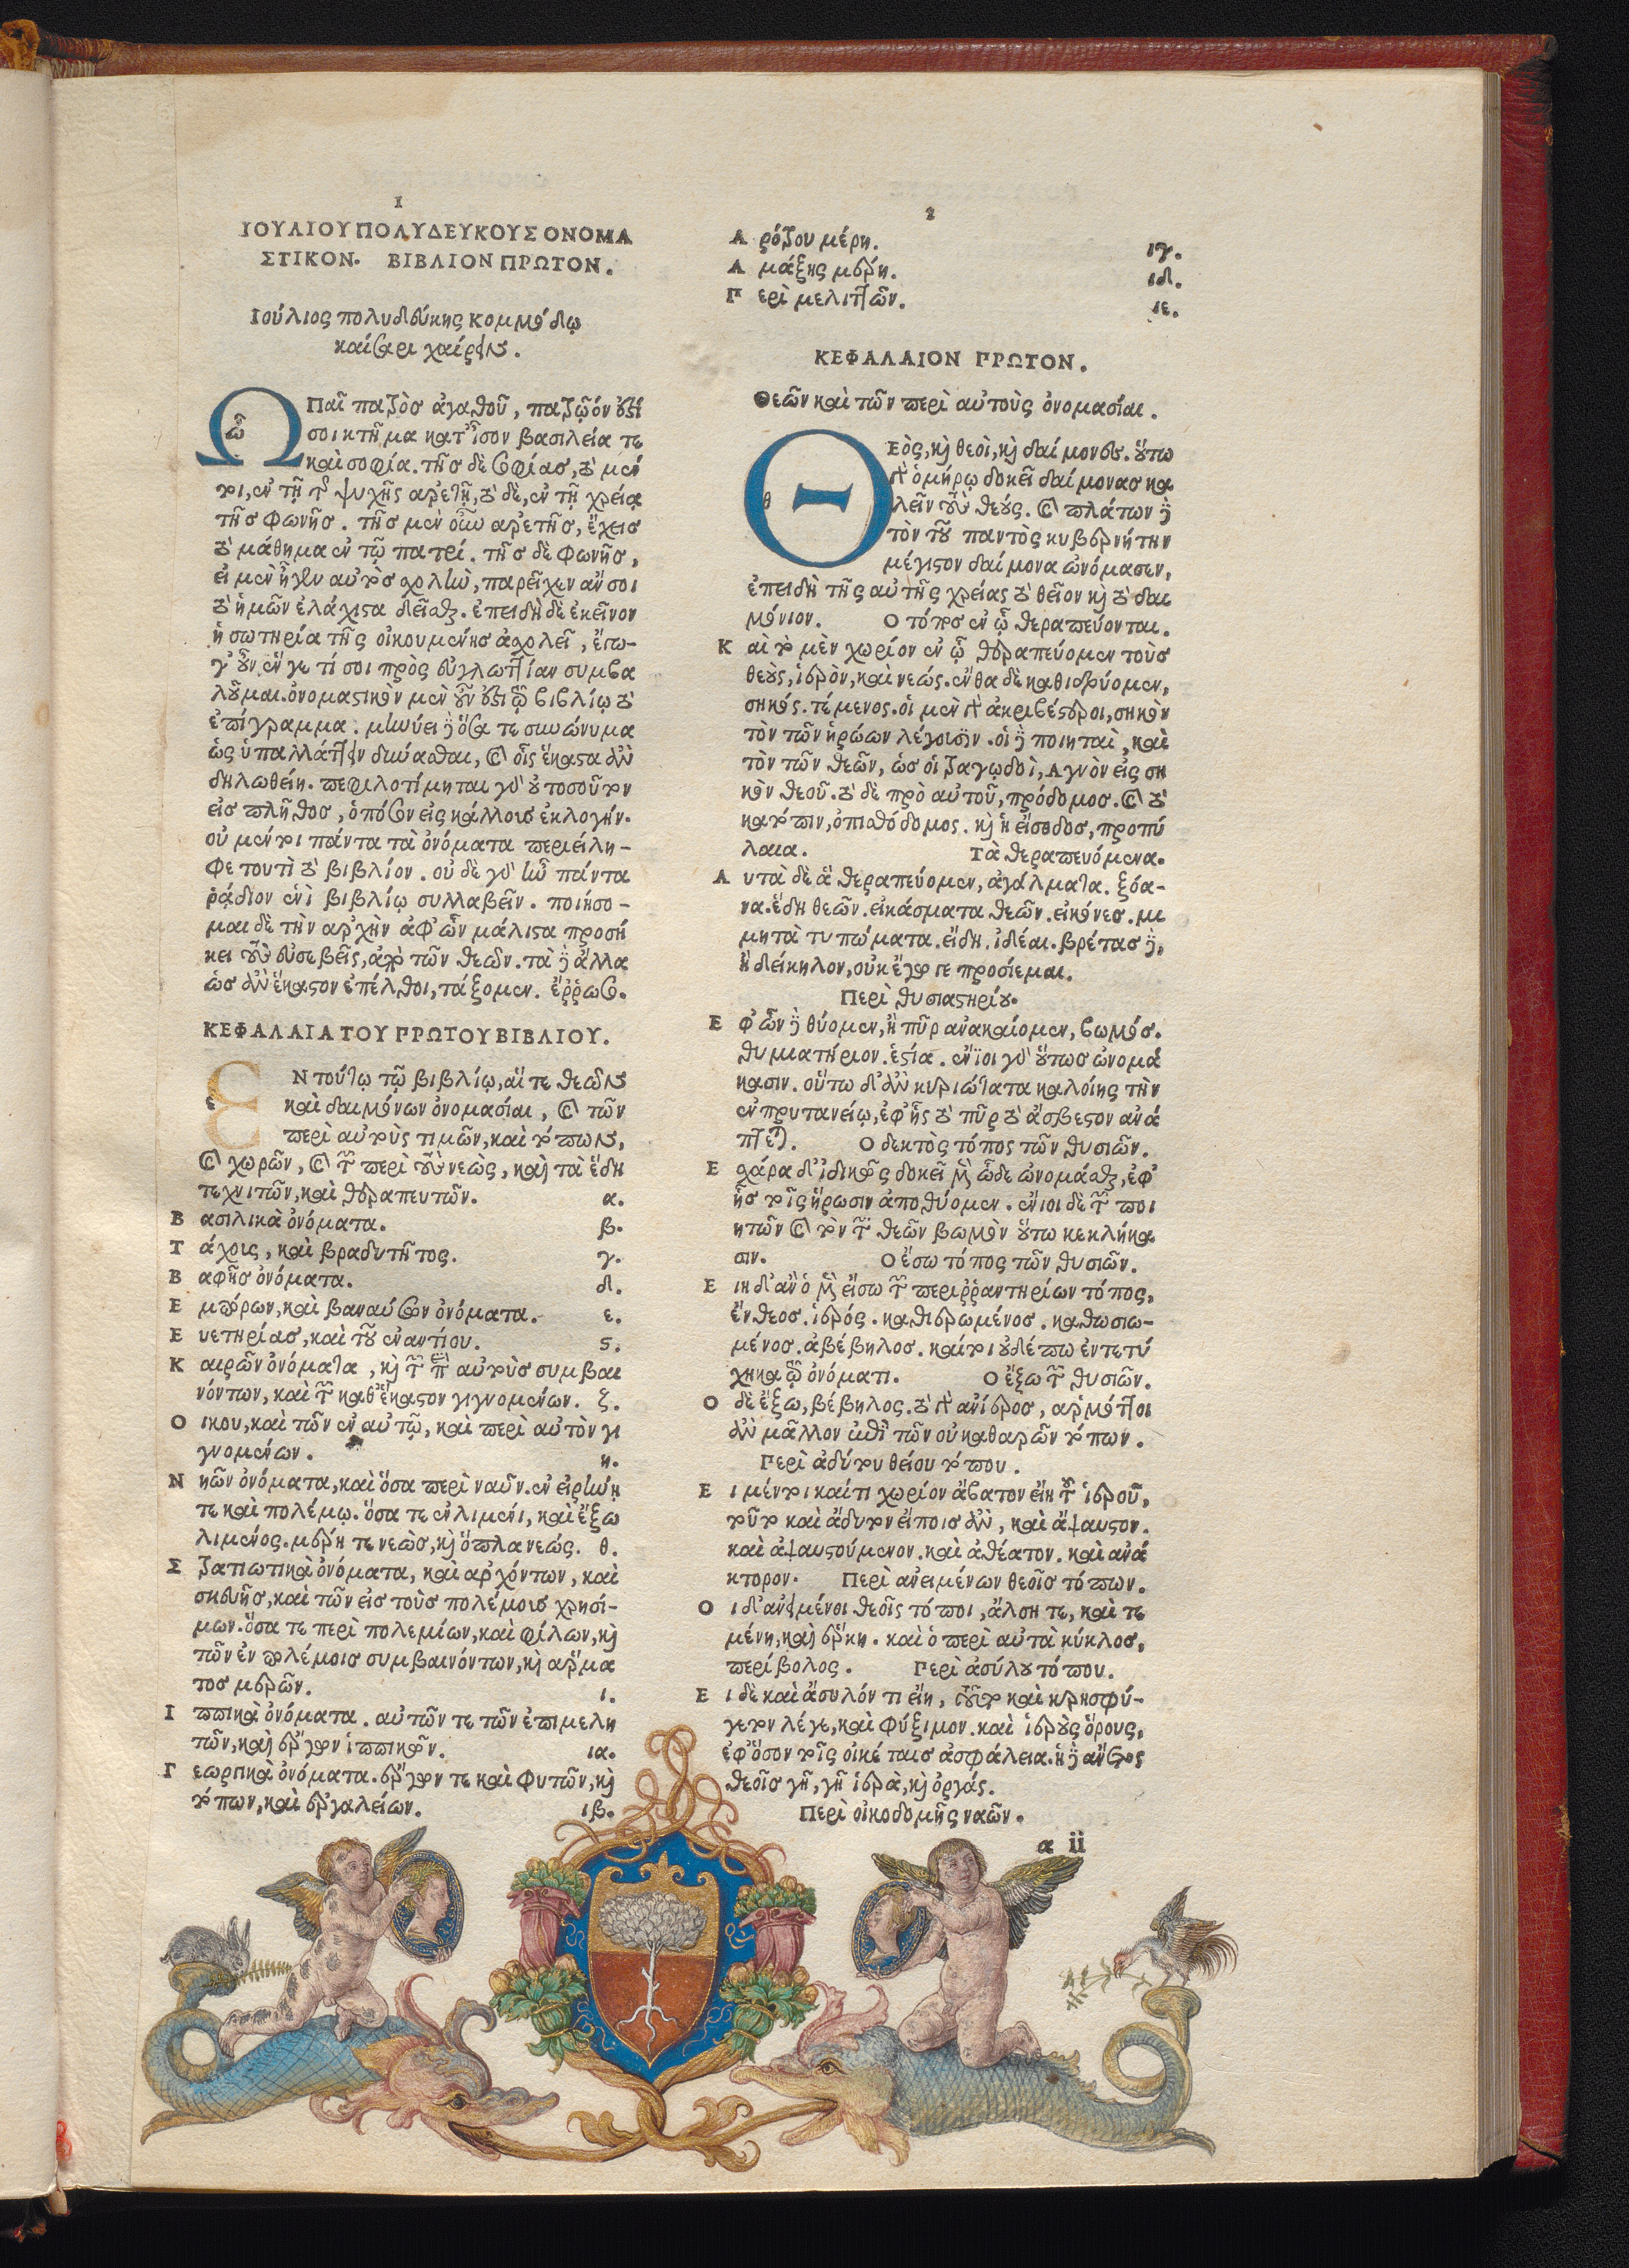 1
ΙΟΥΛΙΟΥ ΠΟΛΥΔΕΥΚΟΥΣ ΟΝΟΜΑ
ΣΤΙΚΟΝ. ΒΙΒΛΙΟΝ ΠΡΩΤΟΝ.
Ιούλιος πολυδεύκης κομμόδῳ
καίσαρι χαίρειν.
Ω
ὦ
Παῖ πατρὸσ ἀγαθοῦ, πατρῷόν ἐστί
σοι κτῆμα κατ' ἴσον βασιλεία τε
καὶ σοφία. τῆσ δὲ σοφίασ, τὸ μέν
τι, ἐν τῇ τῆς ψυχῆς ἀρετῇ, τὸ δὲ, ἐν τῇ χρείᾳ
τῆσ φωνῆσ. τῆσ μὲν οὖν ἀρετῆσ, ἔχεισ
τὸ μάθημα ἐν τῷ πατρί. τῆσ δὲ φωνῆσ,
εἰ μὲν ἦγεν αὐτὸσ σχολὴν, παρεῖχεν ἄν σοι
τὸ ἡμῶν ἐλάχιστα δεῖσθαι. ἐπειδὴ δὲ ἐκεῖνον
ἡ σωτηρία τῆς οἰκουμένησ ἀσχολεῖ, ἔγω-
γ' οὖν ἕν γε τί σοι πρὸς εὐγλωττίαν συμβα
λοῦμαι. ὀνομαστικὸν μὲν οὖν ἐστι τῷ βιβλίῳ τὸ
ἐπίγραμμα. μηνύει δὲ ὅσα τε συνώνυμα
ὡς ὑπαλλάττειν δύνασθαι, καὶ οἷς ἕκαστα ἂν
δηλωθείη. πεφιλοτίμηται γὰρ οὐ τοσοῦτον
εἰσ πλῆθοσ, ὁπόσον εἰς κάλλουσ ἐκλογήν.
οὐ μέντοι πάντα τὰ ὀνόματα περιείλη-
φε τουτὶ τὸ βιβλίον. οὐδὲ γὰρ ἦν πάντα
ῥᾴδιον ἑνὶ βιβλίῳ συλλαβεῖν. ποιήσο-
μαι δὲ τὴν ἀρχὴν ἀφ' ὧν μάλιστα προσή
κει τοὺς εὐσεβεῖς, ἀπὸ τῶν θεῶν. τὰ δὲ ἄλλα
ὡσ ἂν ἕκαστον ἐπέλθοι, τάξομεν. ἔῤῥωσο.
ΚΕΦΑΛΑΙΑ ΤΟΥ ΠΡΩΤΟΥ ΒΙΒΛΙΟΥ.
Ε
ε
Ν τούτῳ τῷ βιβλίῳ, αἵ τε θεῶν
καὶ δαιμόνων ὀνομασίαι, καὶ τῶν
περὶ αὐτοὺς τιμῶν, καὶ τόπων,
καὶ χωρῶν, καὶ τῶν περὶ τοὺς νεὼς, καὶ τὰ ἕδη
τεχνιτῶν, καὶ θεραπευτῶν. α.
Β ασιλικὰ ὀνόματα. β.
Τ άχους, καὶ βραδυτῆτος. γ.
Β αφῆσ ὀνόματα. δ.
Ε μπόρων, καὶ βαναύσων ὀνόματα. ε.
Ε υετηρίασ, καὶ τοῦ ἐναντίου. ς.
Κ αιρῶν ὀνόματα, καὶ τῶν παρ' αὐτοὺσ συμβαι
νόντων, καὶ τῶν καθ' ἕκαστον γιγνομένων. ζ.
Ο ικου, καὶ τῶν ἐν αὐτῷ, καὶ περὶ αὐτὸν γι
γνομένων. η.
Ν ηῶν ὀνόματα, καὶ ὅσα περὶ ναῦν. ἐν εἰρήνῃ
τε καὶ πολέμῳ. ὅσα τε ἐν λιμένι, καὶ ἔξω
λιμένος. μέρη τε νεὼσ, καὶ ὅπλα νεώς. θ.
Σ τρατιωτικὰ ὀνόματα, καὶ ἀρχόντων, καὶ
σκευῆσ, καὶ τῶν εἰσ τοὺσ πολέμουσ χρησί-
μων. ὅσα τε περὶ πολεμίων, καὶ φίλων, καὶ
τῶν ἐν πολέμοισ συμβαινόντων, καὶ ἅρμα
τοσ μερῶν. ι.
Ι ππικὰ ὀνόματα. αὐτῶν τε τῶν ἐπιμελη
τῶν, καὶ ἔργων ἱππικῶν. ια.
Γ εωργικὰ ὀνόματα. ἔργων τε καὶ φυτῶν, καὶ
τόπων, καὶ ἐργαλείων. ιβ.
2
Α ρότρου μέρη. ιγ.
Α μάξης μέρη. ιδ.
Π ερὶ μελιττῶν. ιε.
ΚΕΦΑΛΑΙΟΝ ΠΡΩΤΟΝ.
Θεῶν καὶ τῶν περὶ αὐτοὺς ὀνομασίαι.
Θ
θ
Εὸς, καὶ θεοὶ, καὶ δαίμονες. οὕτω
γὰρ ὁμήρῳ δοκεῖ δαίμονασ κα
λεῖν τοὺς θεούς. καὶ πλάτων δὲ
τὸν τοῦ παντὸς κυβερνήτην
μέγιστον δαίμονα ὠνόμασεν,
ἐπειδὴ τῆς αὐτῆς χρείας τὸ θεῖον καὶ τὸ δαι
μόνιον. Ο τόποσ ἐν ᾧ θεραπεύονται.
Κ αὶ τὸ μὲν χωρίον ἐν ᾧ θεραπεύομεν τοὺσ
θεοὺς, ἱερὸν, καὶ νεώς. ἔνθα δὲ καθιδρύομεν,
σηκός. τέμενος. οἱ μὲν γὰρ ἀκριβέστεροι, σηκὸν
τὸν τῶν ἡρώων λέγουσιν. οἱ δὲ ποιηταὶ, καὶ
τὸν τῶν θεῶν, ὡσ οἱ τραγῳδοὶ, Αγνὸν εἰς ση
κὸν θεοῦ. τὸ δὲ πρὸ αὐτοῦ, πρόδομοσ. καὶ τὸ
κατόπιν, ὀπισθόδομος. καὶ ἡ εἴσοδοσ, προπύ
λαια. Τὰ θεραπευόμενα.
Α υτὰ δὲ ἃ θεραπεύομεν, ἀγάλματα. ξόα-
να. ἕδη θεῶν. εἰκάσματα θεῶν. εἰκόνεσ. μι
μητὰ τυπώματα. εἴδη. ἰδέαι. βρέτασ δὲ,
ἢ δείκηλον, οὐκ ἔγωγε προσίεμαι.
Περὶ θυσιαστηρίου.
Ε φ' ὧν δὲ θύομεν, ἢ πῦρ ἀνακαίομεν, βωμόσ.
θυμιατήριον. ἑστία. ἔνιοι γὰρ οὕτωσ ὠνομά
κασιν. οὕτω δ' ἂν κυριώτατα καλοίης τὴν
ἐν πρυτανείῳ, ἐφ' ἧς τὸ πῦρ τὸ ἄσβεστον ἀνά
πτεται. Ο δεκτὸς τόπος τῶν θυσιῶν.
Ε σχάρα δ' ἰδικῶς δοκεῖ μὲν ὧδε ὠνομάσθαι, ἐφ'
ἧσ τοῖς ἥρωσιν ἀποθύομεν. ἔνιοι δὲ τῶν ποι
ητῶν καὶ τὸν τῶν θεῶν βωμὸν οὕτω κεκλήκα
σιν. Ο ἔσω τόπος τῶν θυσιῶν.
Ε ιη δ' ἂν ὁ μὲν εἴσω τῶν περιῤῥαντηρίων τόπος,
ἔνθεοσ. ἱερός. καθιερωμένοσ. καθωσιω-
μένοσ. ἀβέβηλοσ. καίτοι οὐδέπω ἐντετύ
χηκα τῷ ὀνόματι. Ο ἔξω τῶν θυσιῶν.
Ο δὲ ἔξω, βέβηλος. τὸ γὰρ ἀνίεροσ, ἁρμόττοι
ἂν μᾶλλον ἐπὶ τῶν οὐ καθαρῶν τόπων.
Περὶ ἀδύτου θείου τόπου.
Ε ι μέντοι καί τι χωρίον ἄβατον εἴη τοῦ ἱεροῦ,
τοῦτο καὶ ἄδυτον εἴποισ ἂν, καὶ ἄψαυστον.
καὶ ἀψαυστούμενον. καὶ ἀθέατον. καὶ ἀνά
κτορον. Περὶ ἀνειμένων θεοῖσ τόπων.
Ο ι δ' ἀνειμένοι θεοῖς τόποι, ἄλση τε, καὶ τε
μένη, καὶ ἕρκη. καὶ ὁ περὶ αὐτὰ κύκλοσ,
περίβολος. Περὶ ἀσύλου τόπου.
Ε ι δὲ καὶ ἄσυλόν τι εἴη, τοῦτο καὶ κρησφύ-
γετον λέγε, καὶ φύξιμον. καὶ ἱεροὺς ὅρους,
ἐφ' ὅσον τοῖς οἰκέταισ ἀσφάλεια. ἡ δὲ ἄνετος
θεοῖσ γῆ, γῆ ἱερὰ, καὶ ὀργάς.
Περὶ οἰκοδομῆς ναῶν.
a ii